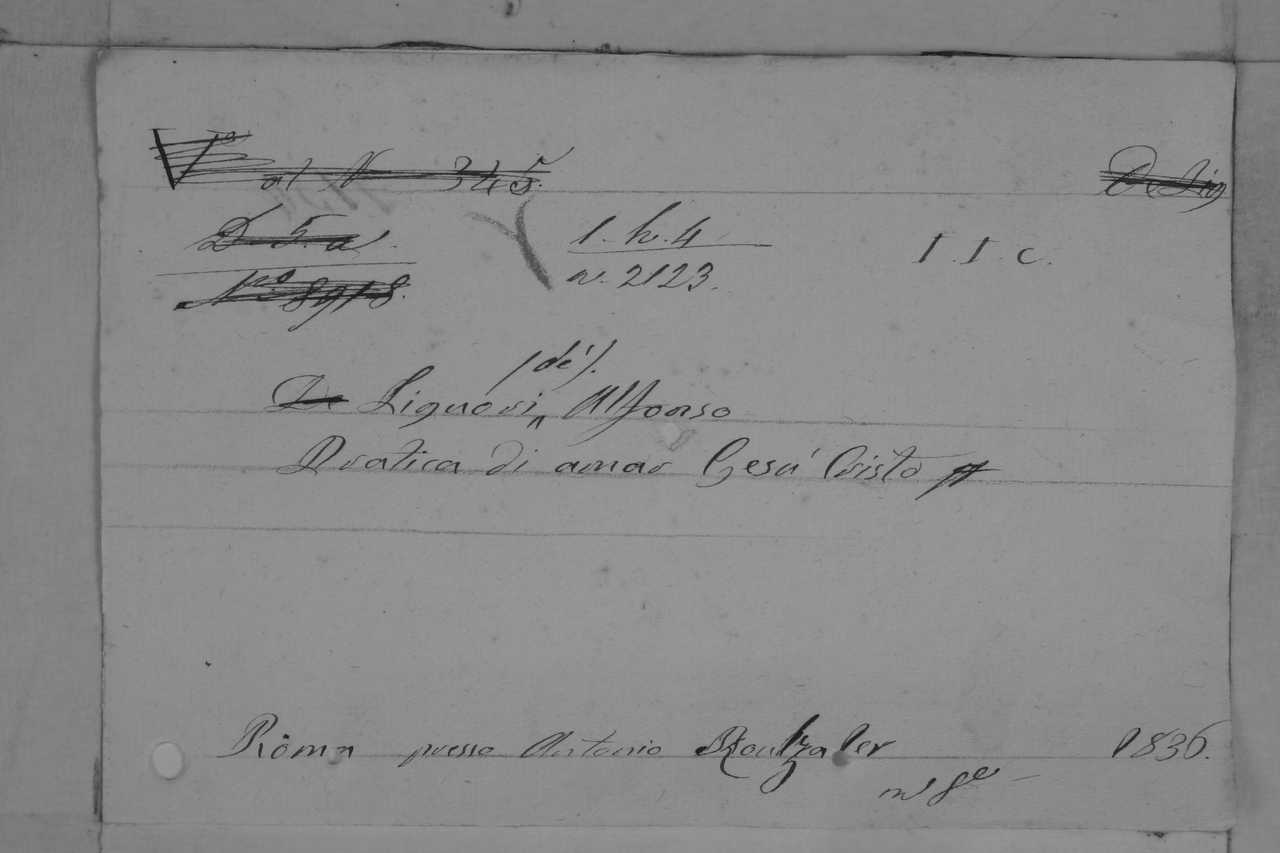 V.º al N 345.
De Lig
D. 5. a.
1. h. 4
I. I. c.
Nº 8918.
n. 2123.
(de').
De Liguori, Alfonso
Pratica di amar Gesù Cristo
Roma presso Antonio Boulzaler 1836.
in 8º